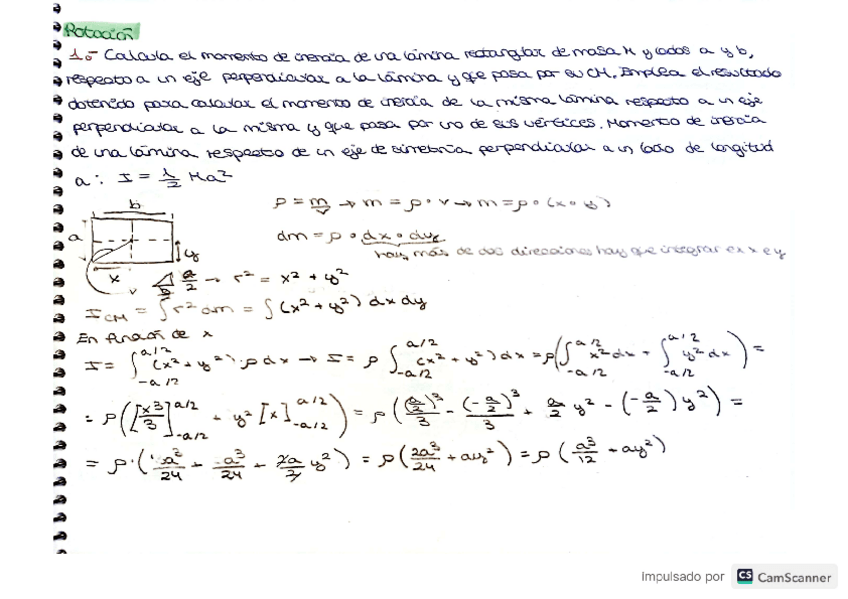 Rotación
1.- Calcula el momento de inercia de una lámina rectangular de masa M y lados a y b,
respecto a un eje perpendicular a la lámina y que pasa por su CM. Emplea el resultado
obtenido para calcular el momento de inercia de la misma lámina respecto a un eje
perpendicular a la misma y que pasa por uno de sus vértices. Momento de inercia
de una lámina respecto de un eje de simetría perpendicular a un lado de longitud
a: I = 1/2 Ma²
b
a
y
x
ρ = m/v → m = ρ · v → m = ρ · (x · y)
dm = ρ · dx · dy
hay más de dos direcciones hay que integrar ex x e y
a/2 → r² = x² + y²
I CM = ∫ r² dm = ∫ (x² + y²) dx dy
En función de x
I = ∫_{-a/2}^{a/2} (x² + y²) · ρ dx → I = ρ ∫_{-a/2}^{a/2} (x² + y²) dx = ρ(∫_{-a/2}^{a/2} x² dx + ∫_{-a/2}^{a/2} y² dx) =
= ρ([x³/3]_{-a/2}^{a/2} + y² [x]_{-a/2}^{a/2}) = ρ((a/2)³/3 - (-a/2)³/3 + a/2 y² - (-a/2) y²) =
= ρ · (a³/24 + a³/24 + 2a/2 y²) = ρ(2a³/24 + ay²) = ρ(a³/12 + ay²)
Impulsado por CS CamScanner